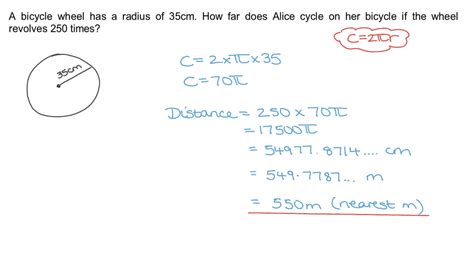 A bicycle wheel has a radius of 35cm. How far does Alice cycle on her bicycle if the wheel
revolves 250 times?
C=2πr
35cm
C = 2×π×35
C = 70π
Distance = 250 × 70π
= 17500π
= 54977.8714.... cm
= 549.7787... m
= 550m (nearest m)